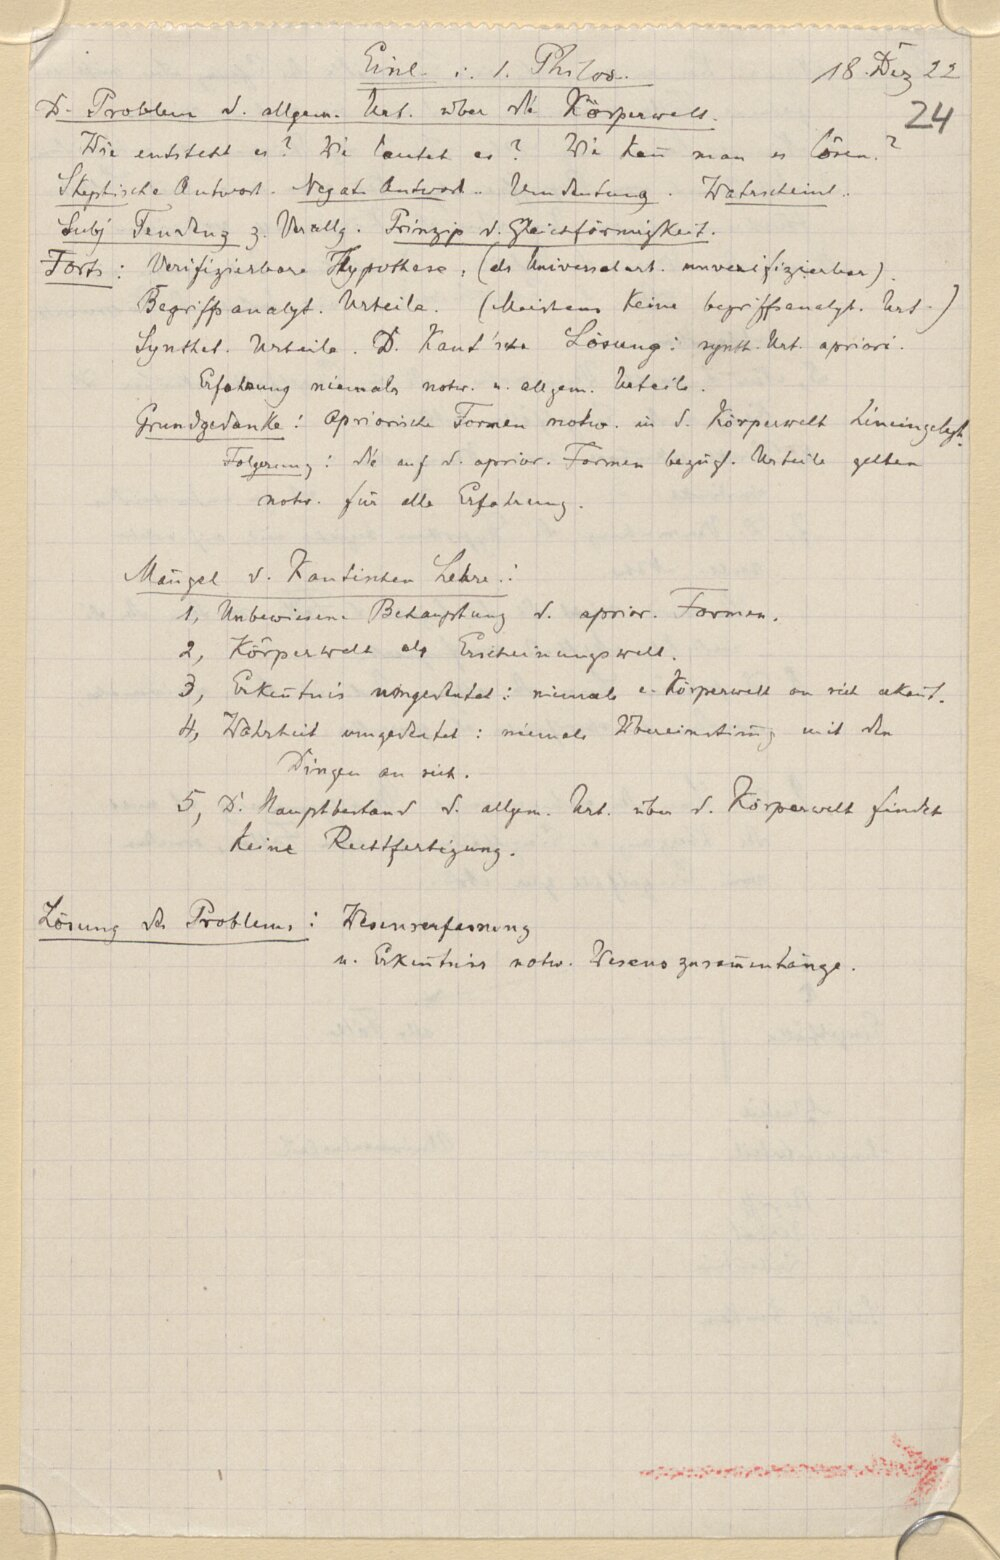 Einl. i. d. Philos. 18. Dez 22
24
D. Problem d. allgem. Urt. über die Körperwelt.
Wie entsteht es? Wie lautet es? Wie kan̄ man es lösen?
Skeptische Antwort. Negat. Antwort. Umdeutung. Wahrscheinl.
Subj Tendenz z. Verallg. Prinzip d. Gleichförmigkeit.
Forts: Verifizierbare Hypothese, (als Universalurt. unverifizierbar).
Begriffsanalyt. Urteile. (Meistens keine begriffsanalyt. Urt.)
Synthet. Urteile. D. Kant'sche Lösung: synth. Urt. apriori.
Erfahrung niemals notw. u. allgem. Urteile.
Grundgedanke: Apriorische Formen notw. in d. Körperwelt hineingelegt.
Folgerung: die auf d. aprior. Formen bezügl. Urteile gelten
notw. für alle Erfahrung.
Mängel d. Kantischen Lehre:
1, Unbewiesene Behauptung d. aprior. Formen.
2, Körperwelt als Erscheinungswelt.
3, Erken̄tnis umgedeutet: niemals e. Körperwelt an sich erkan̄t.
4, Wahrheit umgedeutet: niemals Übereinstim̄g mit den
Dingen an sich.
5, D. Hauptbestand d. allgem. Urt. über d. Körperwelt findet
keine Rechtfertigung.
Lösung des Problems: Wesenserfassung
u. Erken̄tnis notw. Wesenszusam̄enhänge.